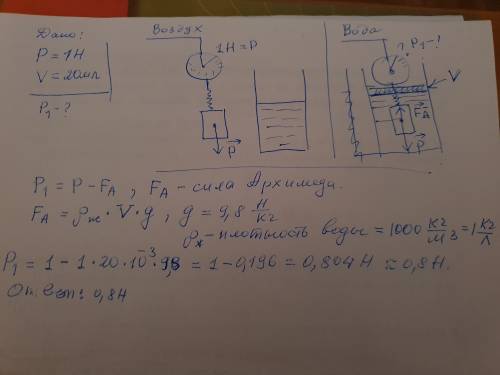 Дано:
P = 1Н
V = 20мл
P₁ - ?
Воздух
1Н = P
P⃗
Вода
P₁ - ?
V
F⃗A
P⃗
P₁ = P - FA , FA - сила Архимеда.
FA = ρж · V · g , g = 9,8 Н/кг
ρж - плотность воды = 1000 кг/м3 = 1 кг/л
P₁ = 1 - 1 · 20 · 10⁻³ · 9,8 = 1 - 0,196 = 0,804 Н ≈ 0,8 Н.
Ответ: 0,8Н